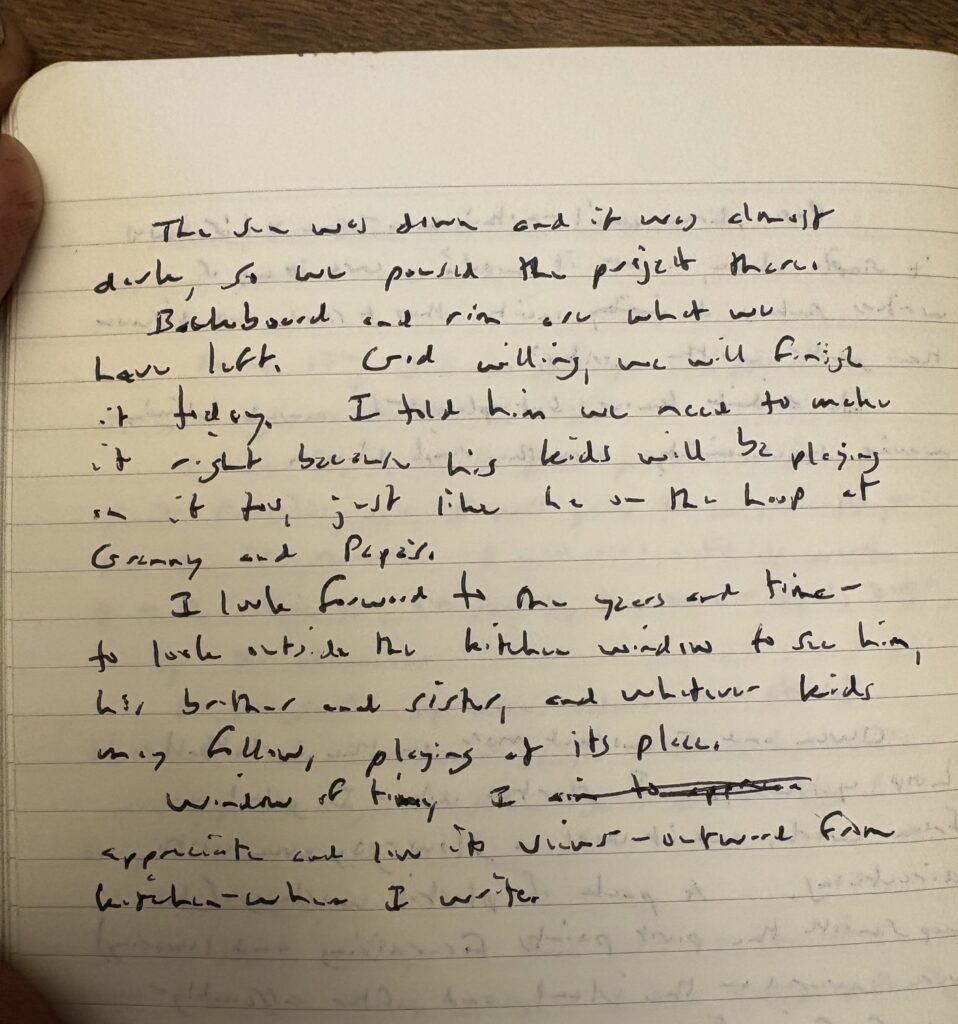 The sun was down and it was almost
dark, so we paused the project there.
Backboard and rim are what we
have left. God willing, we will finish
it today. I told him we need to make
it right because his kids will be playing
on it too, just like he on the hoop at
Granny and Papa's.
I look forward to the years and time-
to look outside the kitchen window to see him,
his brother and sister, and whatever kids
may follow, playing at its place.
Window of time, I aim to
appreciate and live its views - outward from
kitchen - when I write.